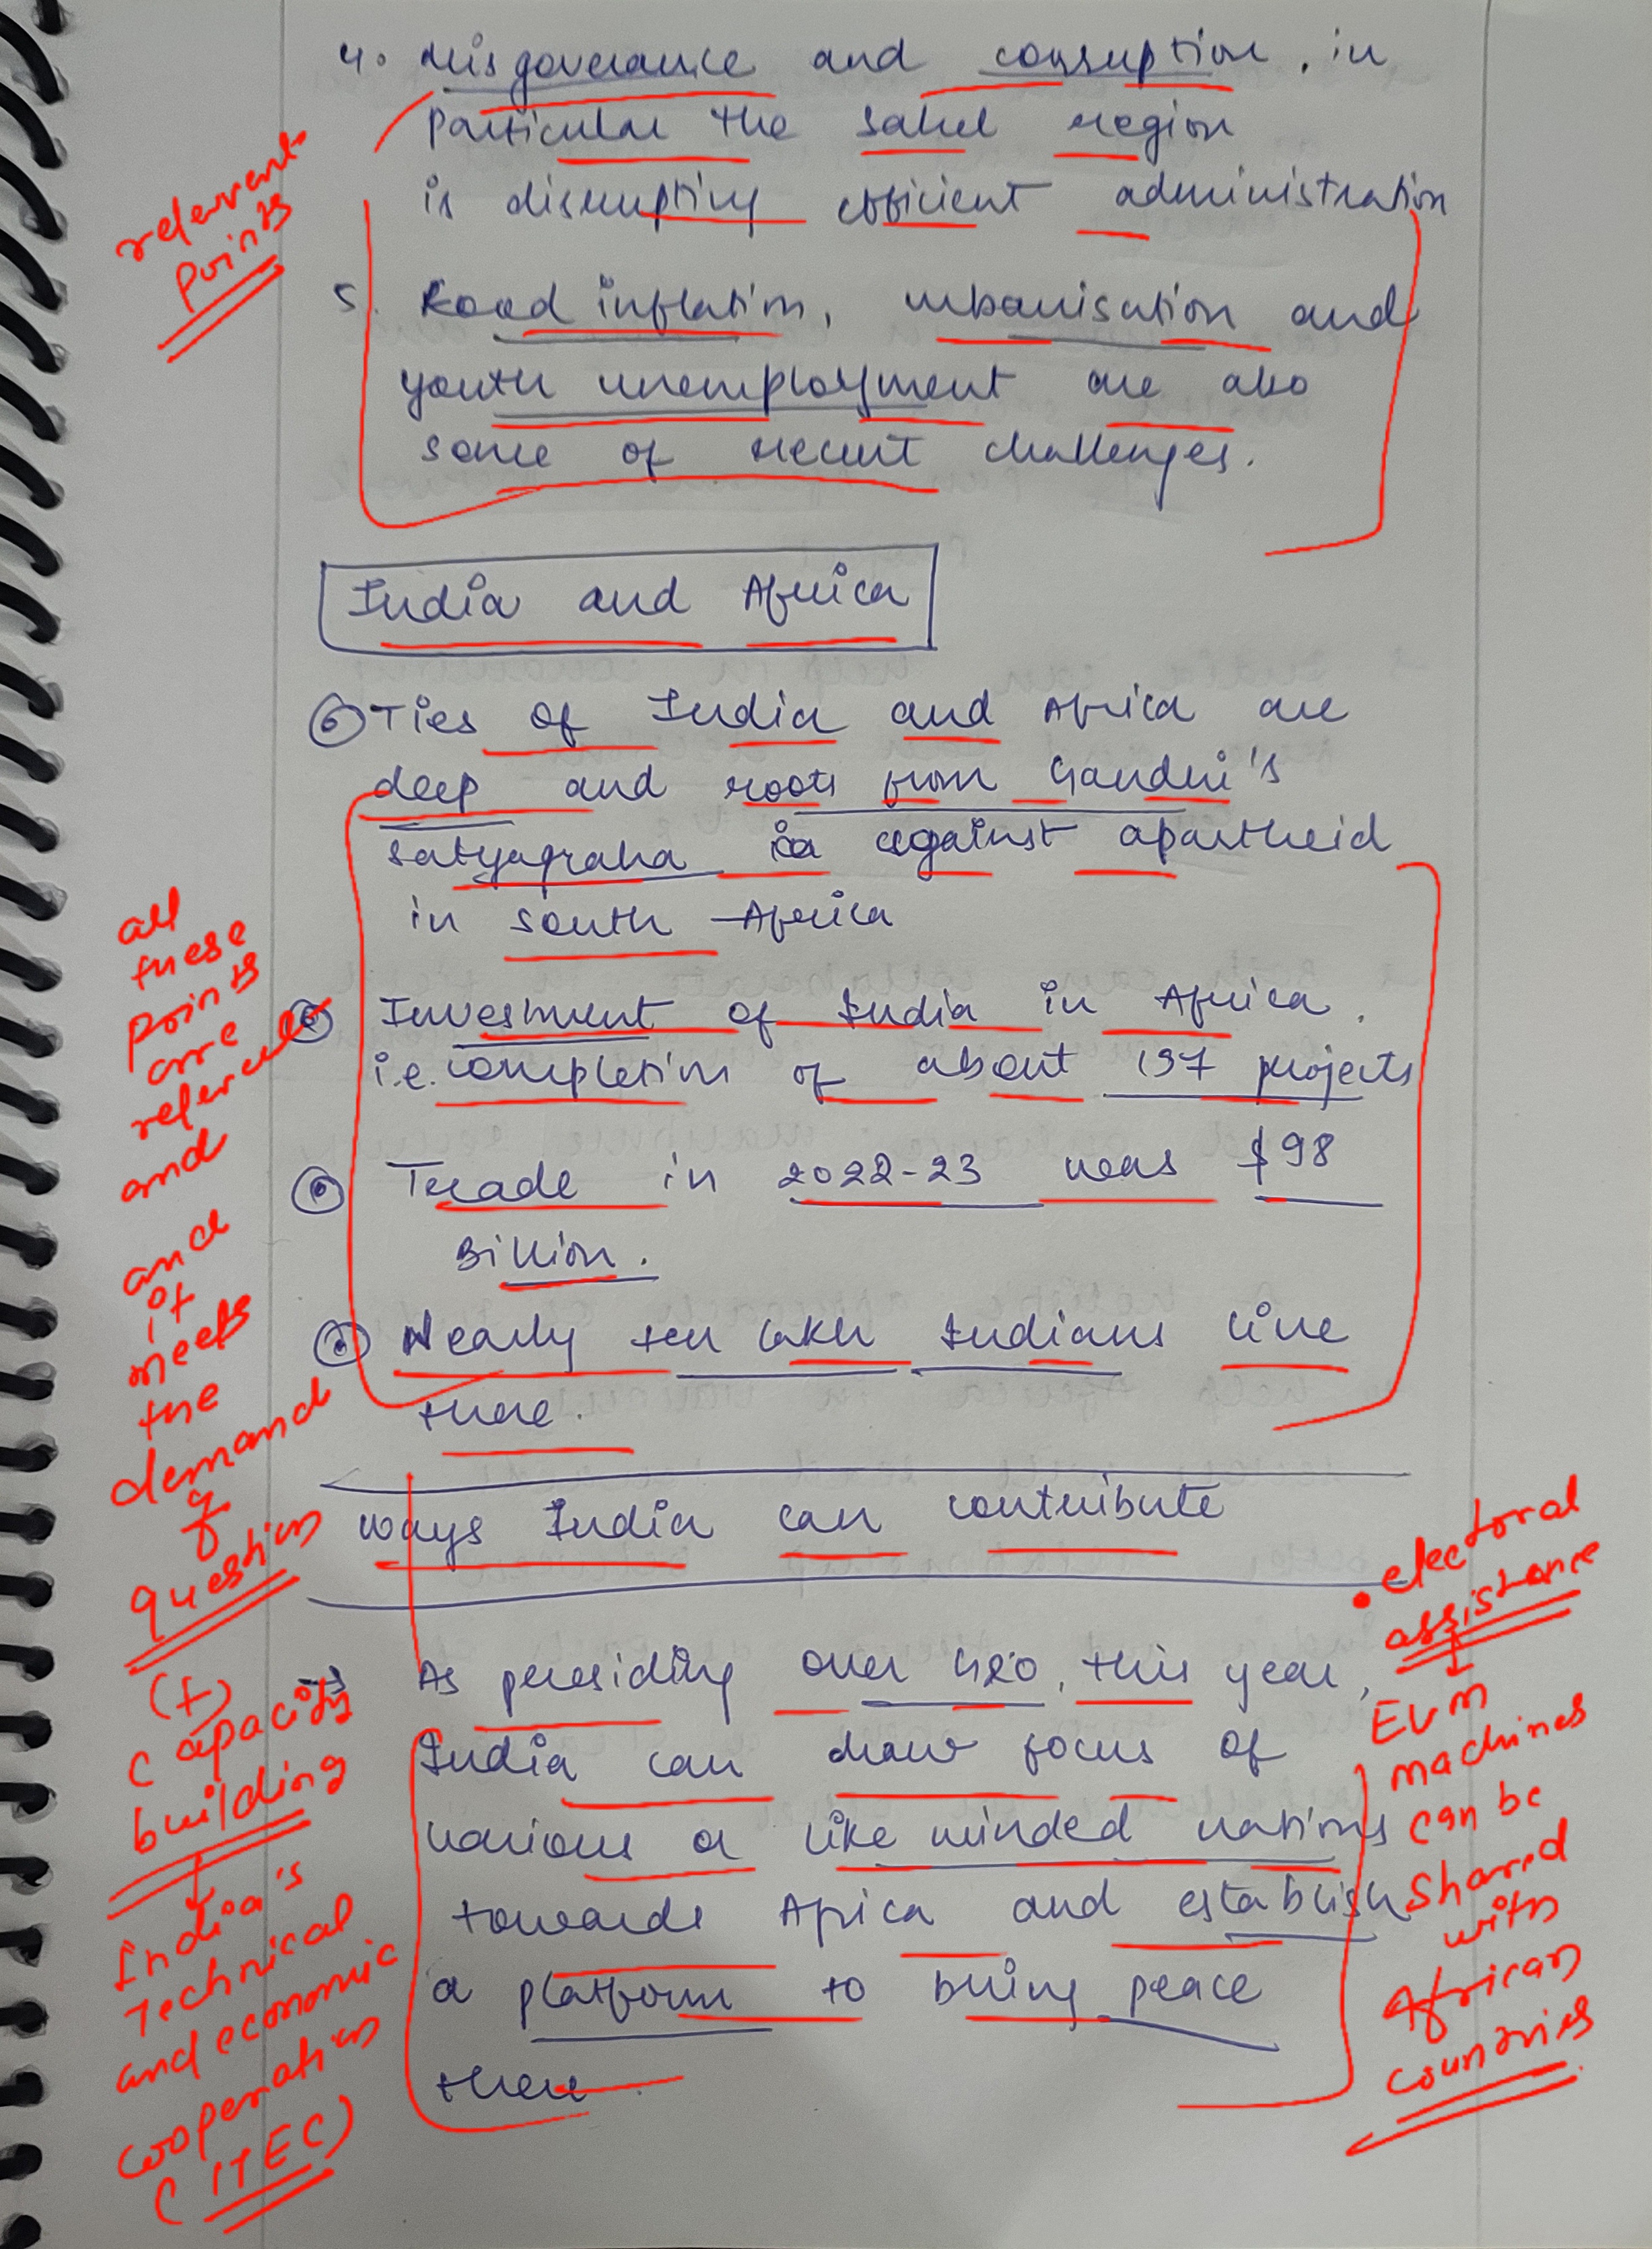 4. Misgoverance and corruption, in
particular the Sahel region
is disrupting efficient administration
5. Food inflation, urbanisation and
youth unemployment are also
some of recent challenges.
relevant
points
India and Africa
Ties of India and Africa are
deep and roots from Gandhi's
satyagraha against apartheid
in South Africa
Investment of India in Africa.
i.e. completion of about 197 projects
Trade in 2022-23 was $98
Billion.
Nearly ten lakh Indians live
there.
all
these
points
are
and
and
it
meets
the
demand
of
question
ways India can contribute
→ As presiding over G20, this year,
India can draw focus of
various or like minded nations
towards Africa and establish
a platform to bring peace
there
(+)
capacity
building
India's
Technical
and economic
cooperation
(ITEC)
• electoral
assistance
EVM
machines
can be
shared
with
African
countries